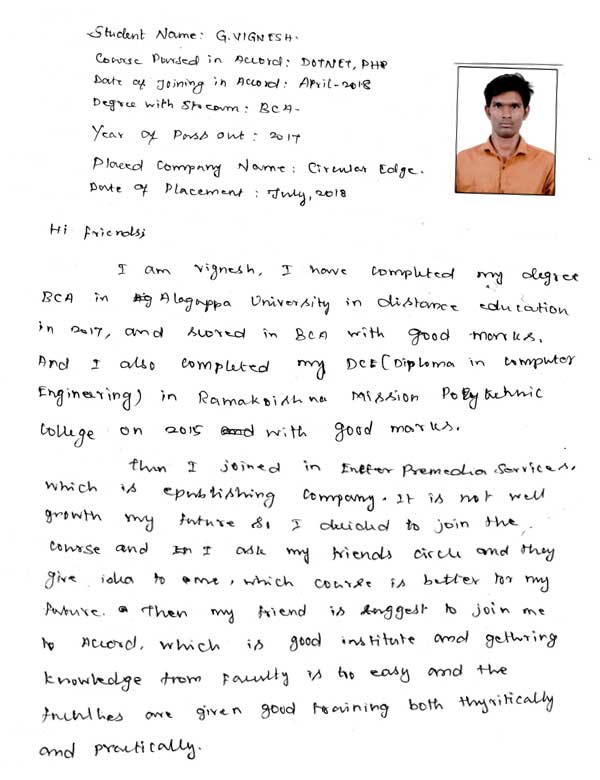 Student Name: G.VIGNESH.
Course Pursed in Accord: DOTNET, PHP
Date of Joining in Accord: April-2018
Degree with Stream: BCA-
Year of Pass out: 2017
Placed Company Name: Circular Edge.
Date of Placement: July, 2018
Hi friends,
I am vignesh, I have completed my degree
BCA in Alagappa University in distance education
in 2017, and scored in BCA with good marks.
And I also completed my DCE (Diploma in computer
Engineering) in Ramakrishna Mission Polytechnic
college on 2015 and with good marks.
then I joined in Premedia Services.
which is epublishing company. It is not well
growth my future So I decided to join the
course and I ask my friends circle and they
give idea to me, which course is better for my
future. Then my friend is suggest to join me
to Accord, which is good institute and gethring
knowledge from Faculty is too easy and the
are given good training both thyritically
and practically.